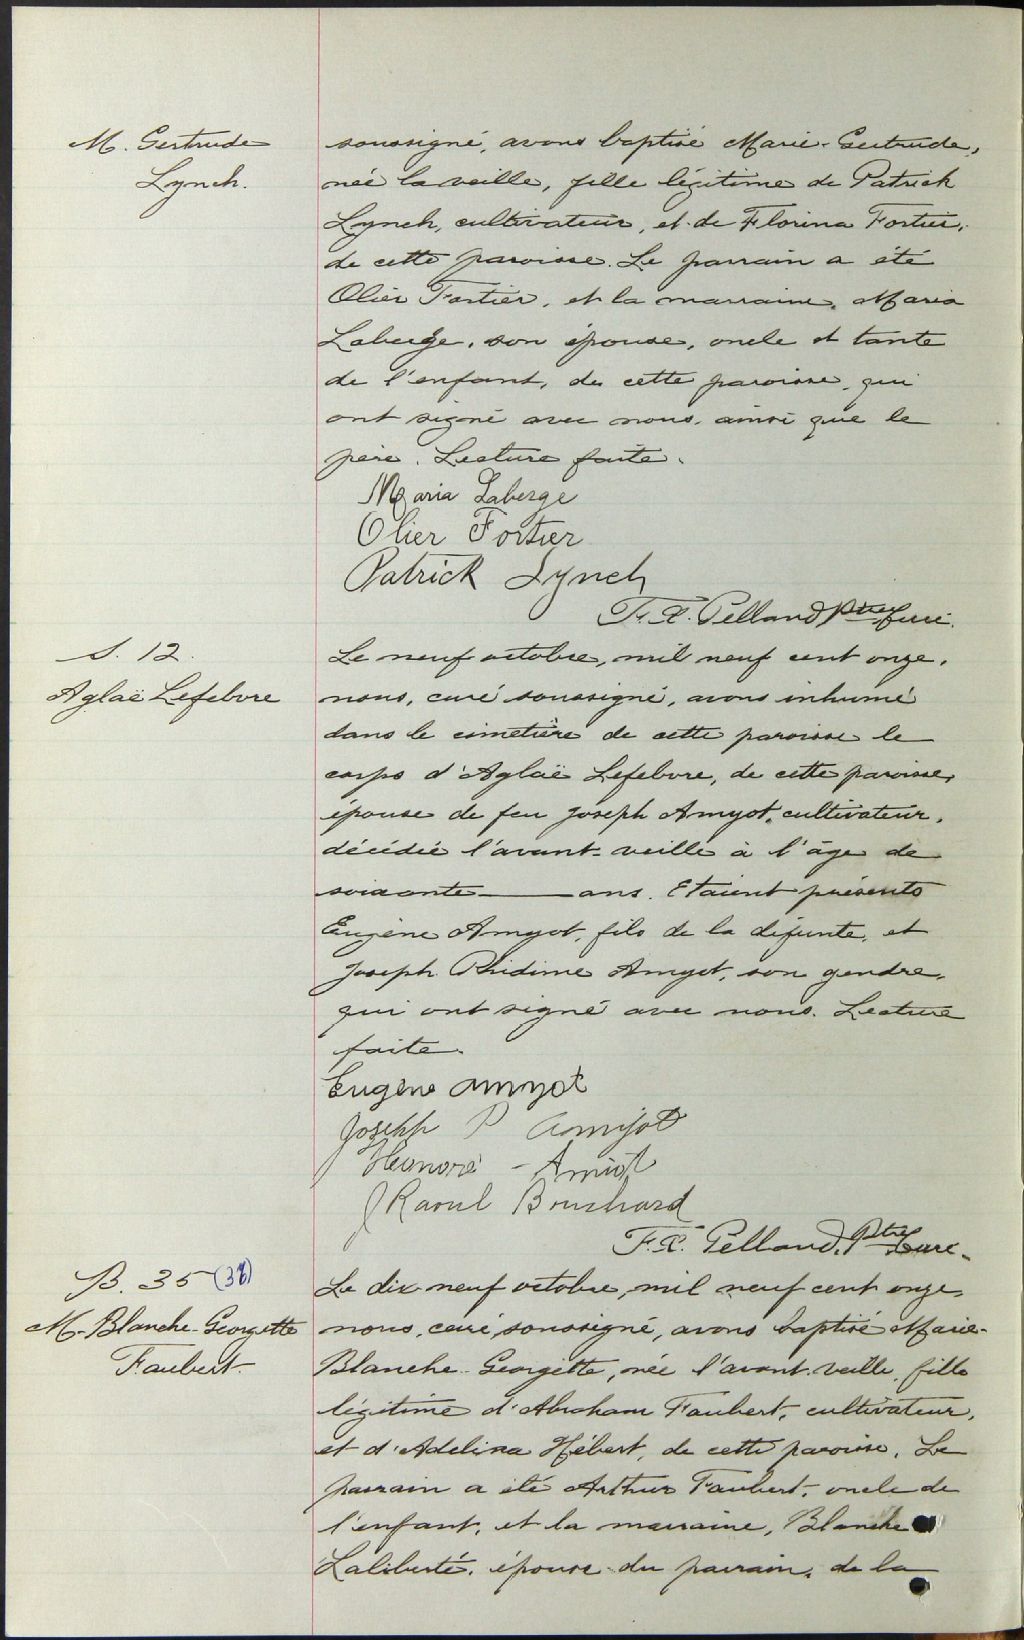 M. Gertrude
Lynch.
soussigné, avons baptisé Marie-Gertrude,
née la veille, fille légitime de Patrick
Lynch, cultivateur, et de Florina Fortier,
de cette paroisse. Le parrain a été
Olier Fortier, et la marraine, Maria
Laberge, son épouse, oncle et tante
de l'enfant, de cette paroisse, qui
ont signé avec nous, ainsi que le
père. Lecture faite.
Maria Laberge
Olier Fortier
Patrick Lynch
F.X. Pelland Ptre Curé.
S. 12.
Aglaë Lefebvre
Le neuf octobre, mil neuf cent onze,
nous, curé soussigné, avons inhumé
dans le cimetière de cette paroisse le
corps d'Aglaë Lefebvre, de cette paroisse,
épouse de feu Joseph Amyot, cultivateur,
décédée l'avant-veille à l'âge de
soixante ans. Etaient présents
Eugène Amyot, fils de la défunte, et
Joseph Phidime Amyot, son gendre,
qui ont signé avec nous. Lecture
faite.
Eugène Amyot
Joseph P Amyot
Honoré - Amiot
J Raoul Bouchard
F.X. Pelland, Ptre Curé.
B. 35 (36)
M-Blanche-Georgette
Faubert.
Le dix-neuf octobre, mil neuf cent onze,
nous, curé soussigné, avons baptisé Marie-
Blanche-Georgette, née l'avant-veille, fille
légitime d'Abraham Faubert, cultivateur,
et d'Adelina Hébert, de cette paroisse. Le
parrain a été Arthur Faubert, oncle de
l'enfant, et la marraine, Blanche
Laliberté, épouse du parrain, de la